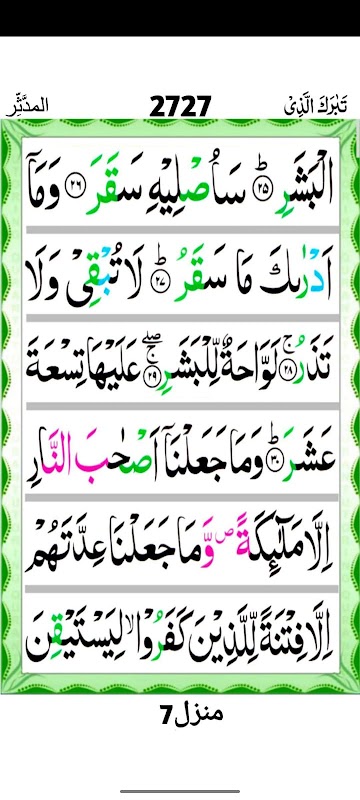 تَبٰرَكَ الَّذِىْ 2727 المدَّثِّر
الْبَشَرِ ؕ‏ ﴿۲۵﴾ سَاُصْلِيْهِ سَقَرَ‏ ﴿۲۶﴾ وَمَاۤ
اَدْرٰٮكَ مَا سَقَرُ ؕ‏ ﴿۲۷﴾ لَا تُبْقِىْ وَلَا
تَذَرُ‌ۚ‏ ﴿۲۸﴾ لَوَّاحَةٌ لِّلْبَشَرِ‌ۖ‌ۚ‏ ﴿۲۹﴾ عَلَيْهَا تِسْعَةَ
عَشَرَؕ‏ ﴿۳۰﴾ وَمَا جَعَلْنَاۤ اَصْحٰبَ النَّارِ
اِلَّا مَلٰٓٮِٕكَةً‌ ص وَّمَا جَعَلْنَا عِدَّتَهُمْ
اِلَّا فِتْنَةً لِّلَّذِيْنَ كَفَرُوْا ۙ لِيَسْتَيْقِنَ
منزل7